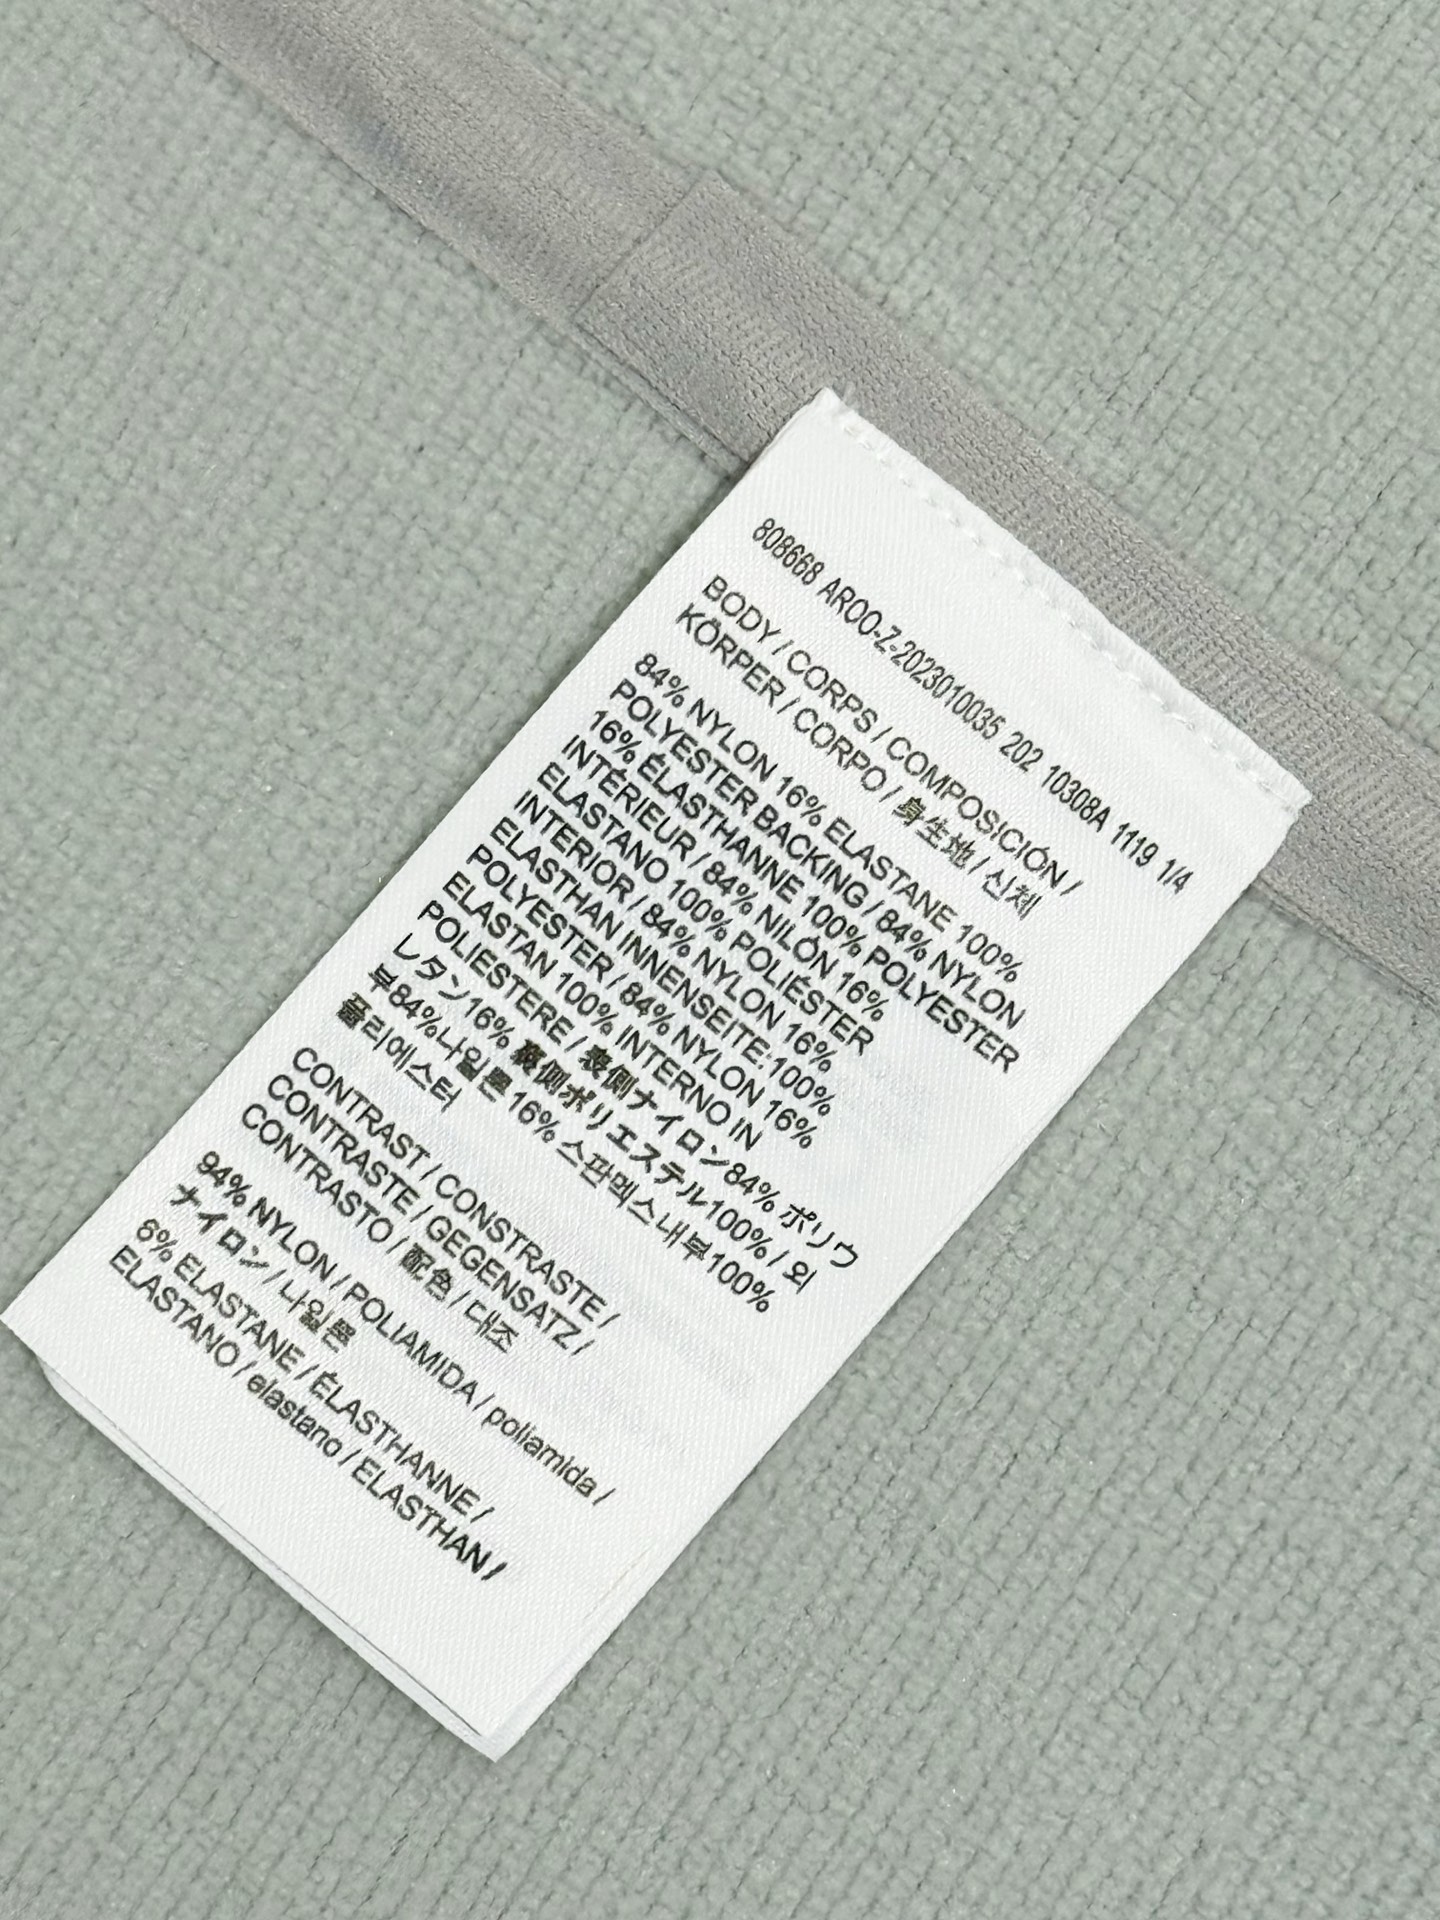 808668 AROO-Z-2023010035 202 10308A 1119 1/4
BODY / CORPS / COMPOSICIÓN /
KÖRPER / CORPO / 身生地 / 신체
84% NYLON 16% ELASTANE 100%
POLYESTER BACKING / 84% NYLON
16% ÉLASTHANNE 100% POLYESTER
INTÉRIEUR / 84% NILÓN 16%
ELASTANO 100% POLIÉSTER
INTERIOR / 84% NYLON 16%
ELASTHAN INNENSEITE:100%
POLYESTER / 84% NYLON 16%
ELASTAN 100% INTERNO IN
POLIESTERE / 表側ナイロン84% ポリウ
レタン16% 裏側ポリエステル100% / 외
부84%나일론 16% 스판덱스내부100%
폴리에스터
CONTRAST / CONSTRASTE /
CONTRASTE / GEGENSATZ /
CONTRASTO / 配色 / 대조
94% NYLON / POLIAMIDA / poliamida /
ナイロン / 나일론
6% ELASTANE / ÉLASTHANNE /
ELASTANO / elastano / ELASTHAN /